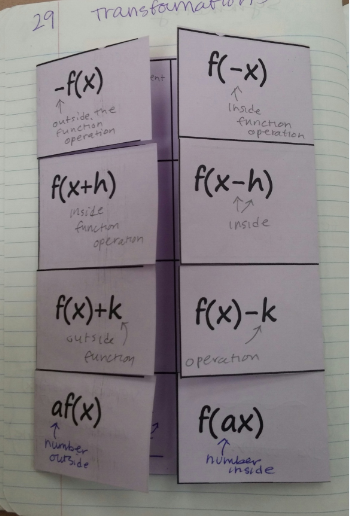 29 Transformation
-f(x)
outside, the
function
operation
f(-x)
inside
function
operation
ent
f(x+h)
inside
function
operation
f(x-h)
inside
f(x)+k
outside
function
f(x)-k
operation
af(x)
number
outside
f(ax)
number
inside